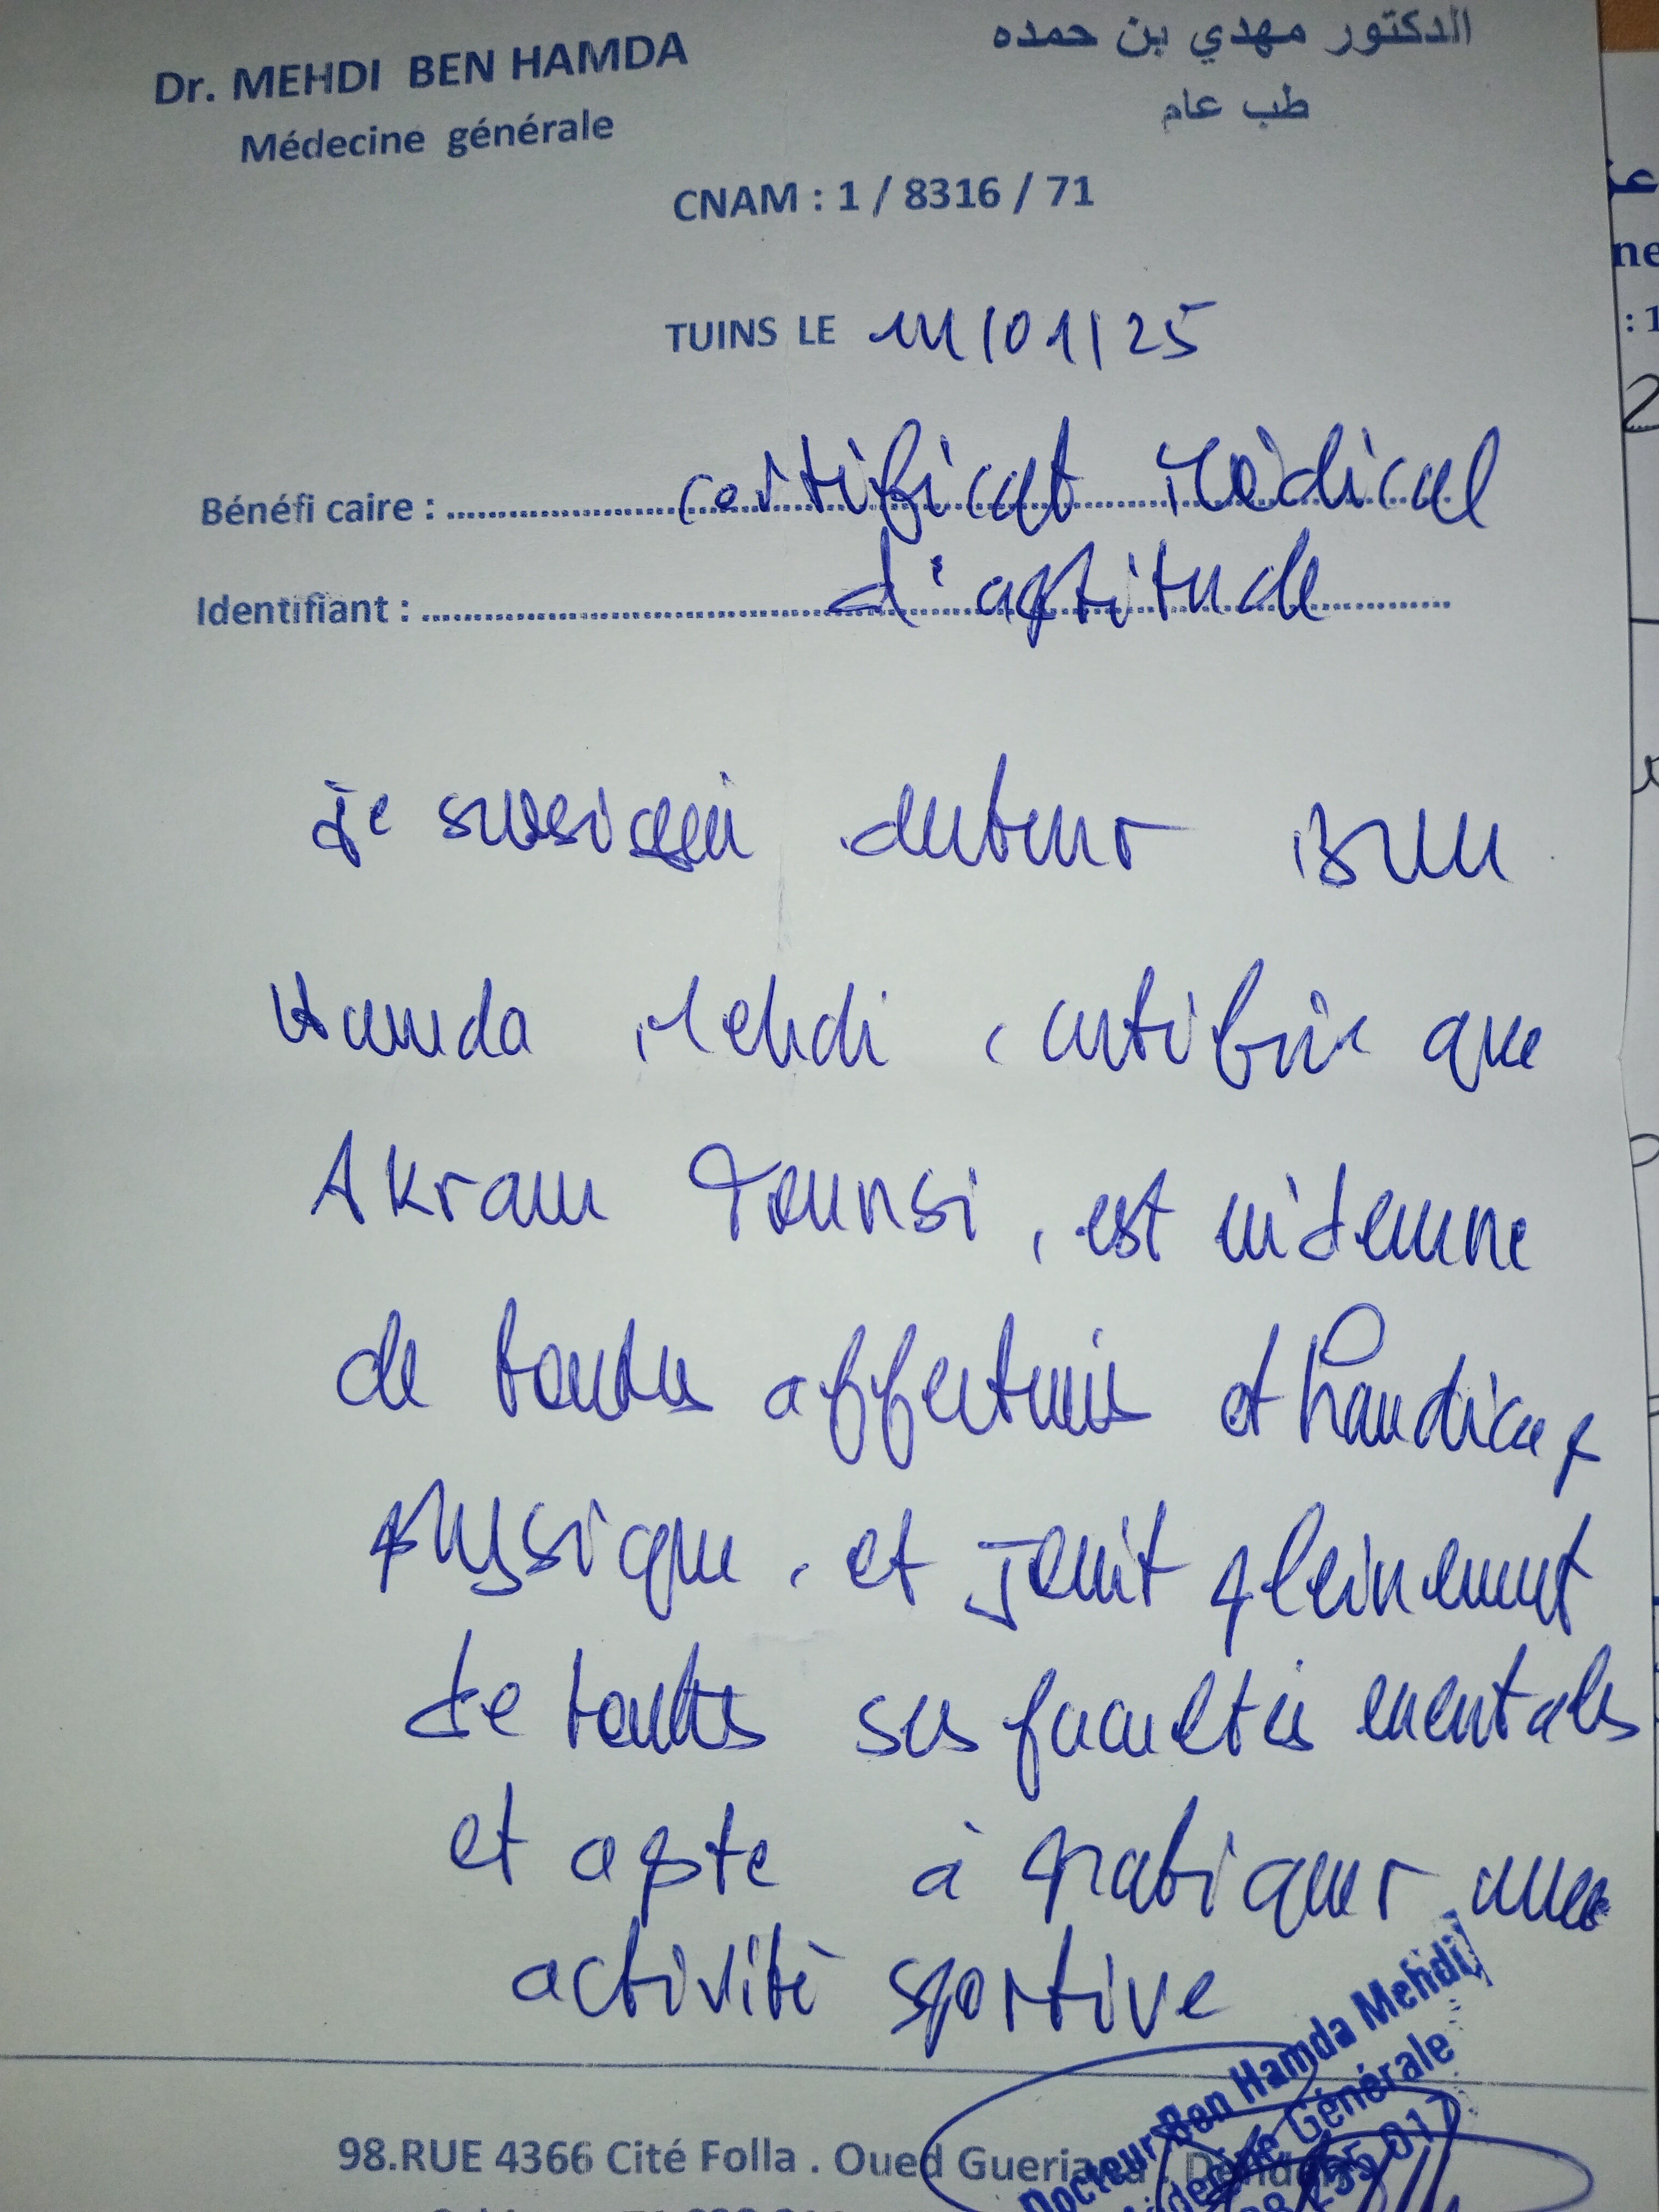 Dr. MEHDI BEN HAMDA
الدكتور مهدي بن حمده
Médecine générale
طب عام
CNAM : 1 / 8316 / 71
TUINS LE 11/01/25
Bénéfi caire : certificat Médical
Identifiant : d'aptitude
je soussigné docteur Ben
Hamda Mehdi, certifie que
Akram Tounsi, est indemne
de toutes affections et handicap
physique, et jouit pleinement
de toutes ses facultés mentales
et apte à pratiquer une
activité sportive
Docteur Ben Hamda Mehdi
Médecine Générale
98.RUE 4366 Cité Folla . Oued Gueriana